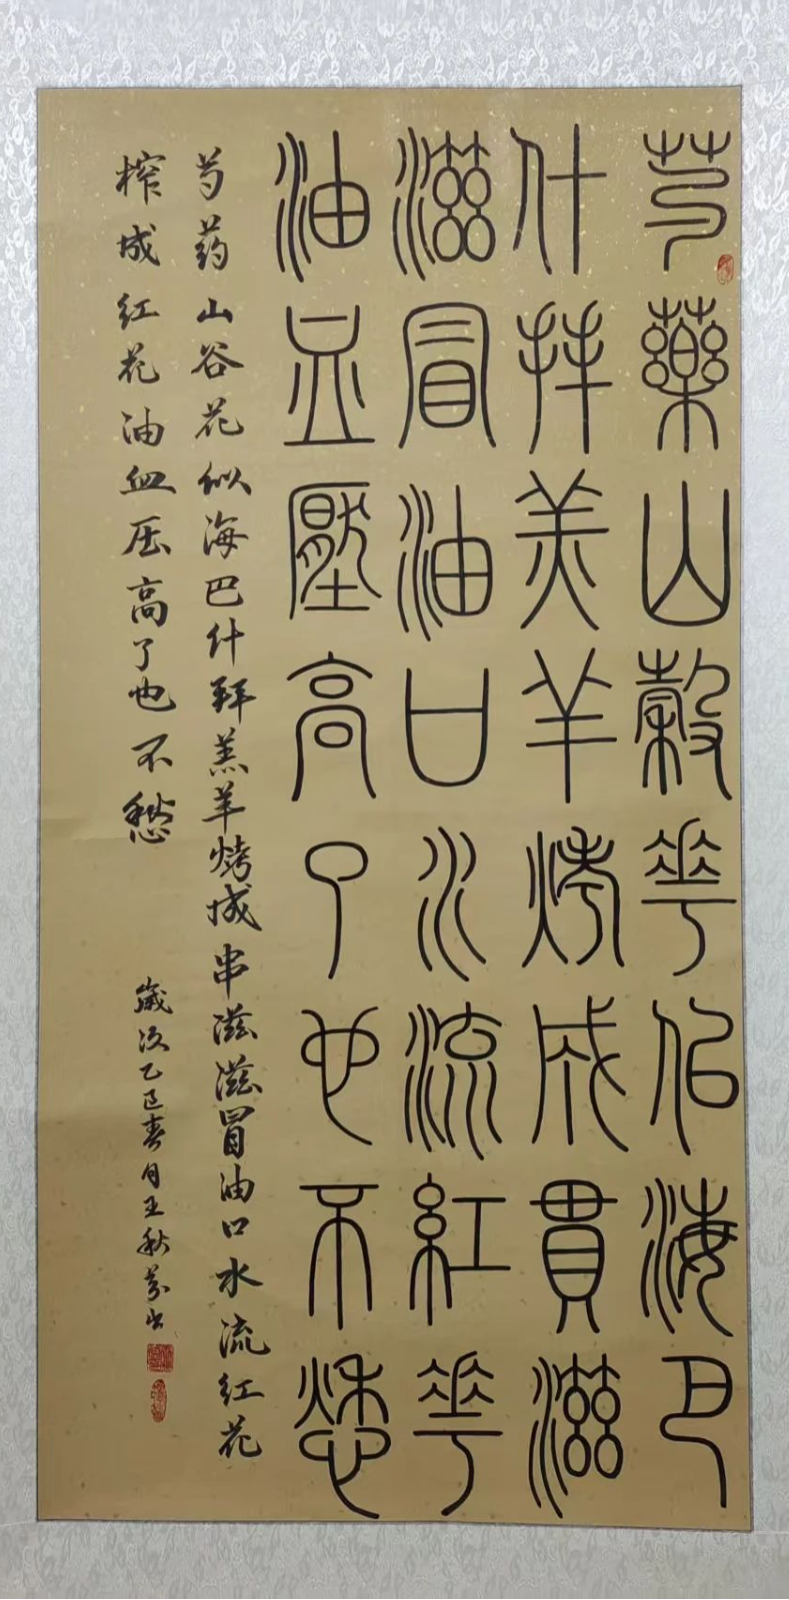 芍藥山穀華佀海巴
什拜羔羊烤成貫滋
滋冒油口水流紅華
油血壓高了也不愁
芍药山谷花似海巴什拜羔羊烤城串滋滋冒油口水流红花
榨成红花油血压高了也不愁
歲次乙巳春月王秋芬书